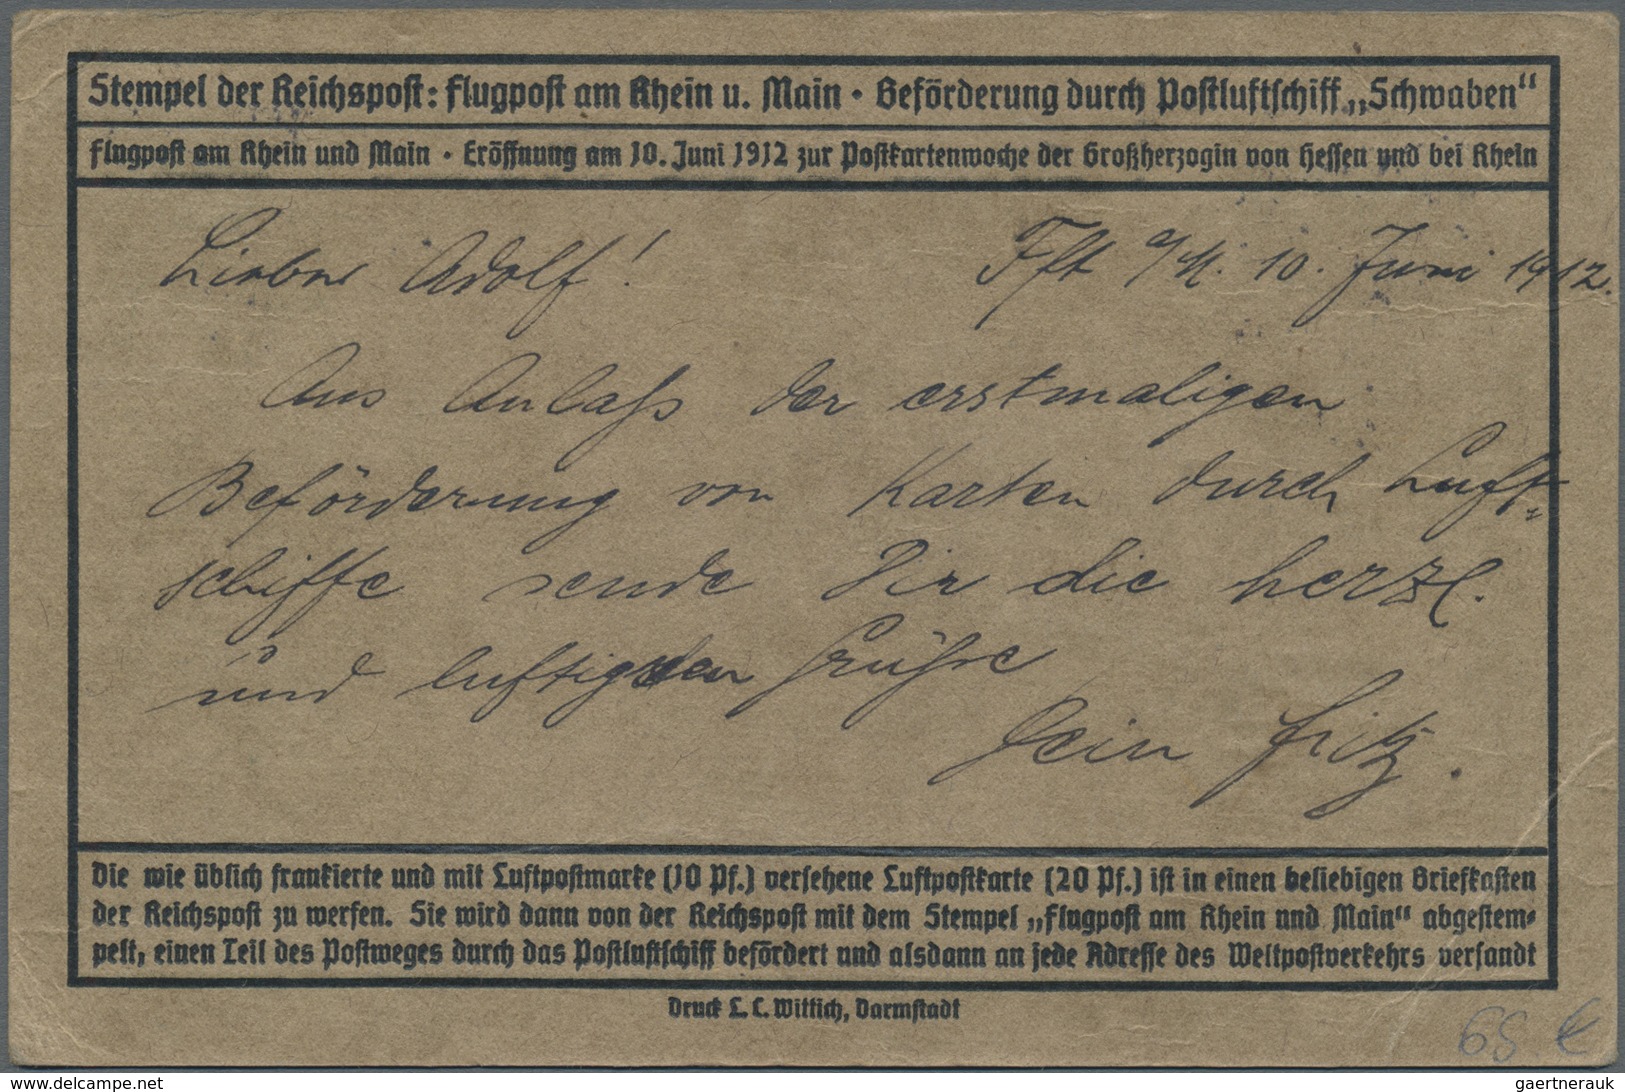 Stempel der Reichspost: Flugpost am Rhein u. Main · Beförderung durch Postluftschiff „Schwaben“
Flugpost am Rhein und Main · Eröffnung am 10. Juni 1912 zur Postkartenwoche der Großherzogin von Hessen und bei Rhein
Lieber Adolf! Fft a/M. 10. Juni 1912.
Aus Anlaß der erstmaligen
Beförderung von Karten durch Luft=
schiffe sende Dir die herzl.
und luftigsten Grüße
Dein Fritz.
Die wie üblich frankierte und mit Luftpostmarke (10 Pf.) versehene Luftpostkarte (20 Pf.) ist in einen beliebigen Briefkasten
der Reichspost zu werfen. Sie wird dann von der Reichspost mit dem Stempel „Flugpost am Rhein und Main“ abgestem=
pelt, einen Teil des Postweges durch das Postluftschiff befördert und alsdann an jede Adresse des Weltpostverkehrs versandt
Druck L. C. Wittich, Darmstadt
65 €
delcampe.net
gaertnerauk